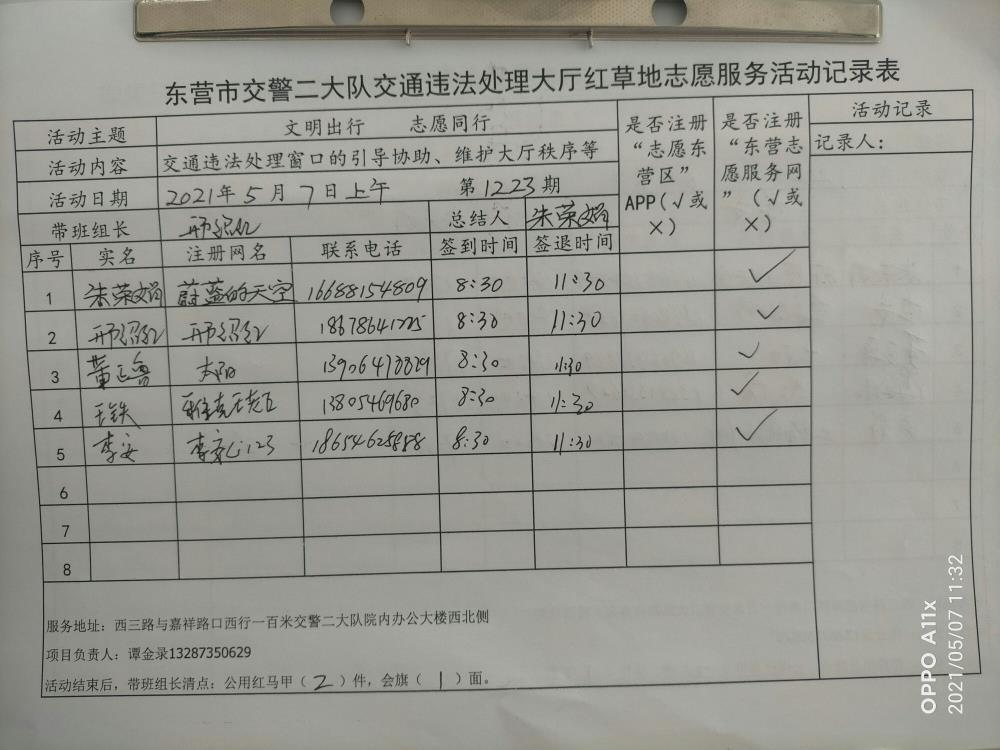 东营市交警二大队交通违法处理大厅红草地志愿服务活动记录表
活动主题 文明出行 志愿同行 是否注册“志愿东营区”APP(√或×) 是否注册“东营志愿服务网”(√或×) 活动记录
活动内容 交通违法处理窗口的引导协助、维护大厅秩序等 记录人:
活动日期 2021年5月7日上午 第1223期
带班组长 邢绍红 总结人 朱荣娟
序号 实名 注册网名 联系电话 签到时间 签退时间
1 朱荣娟 蔚蓝的天空 16688154809 8:30 11:30 √
2 邢绍红 邢绍红 8:30 11:30 √
3 董正鲁 太阳 8:30 11:30 √
4 王铁 13805469680 8:30 11:30 √
5 李安 8:30 11:30 √
6
7
8
服务地址:西三路与嘉祥路口西行一百米交警二大队院内办公大楼西北侧
项目负责人:谭金录13287350629
活动结束后,带班组长清点:公用红马甲(2)件,会旗(1)面。
OPPO A11x
2021/05/07 11:32